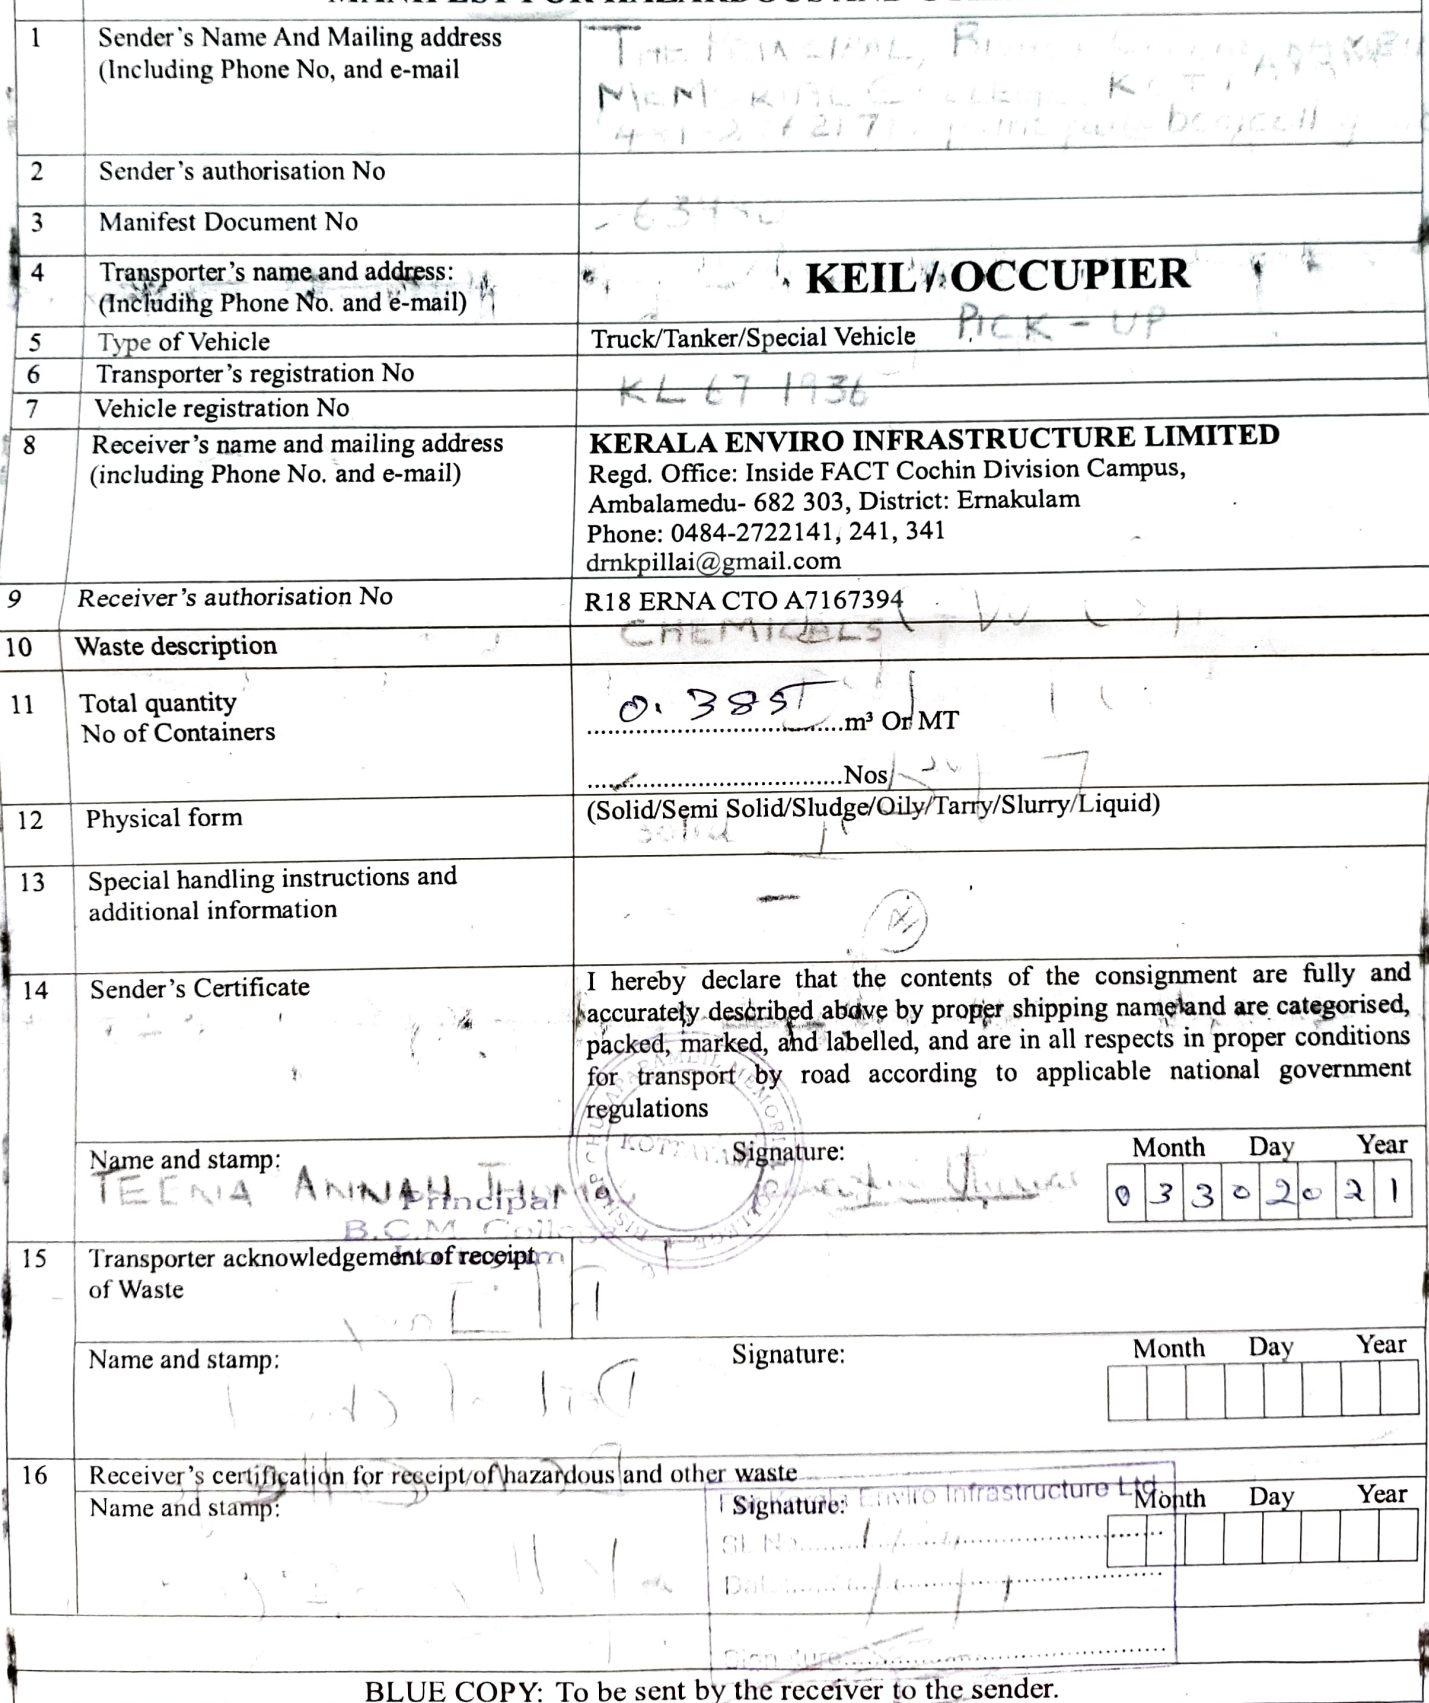 1 Sender's Name And Mailing address
(Including Phone No, and e-mail
THE
2 Sender's authorisation No
3 Manifest Document No
4 Transporter's name and address:
(Including Phone No. and e-mail)
KEIL / OCCUPIER
5 Type of Vehicle Truck/Tanker/Special Vehicle PICK-UP
6 Transporter's registration No
KL 67 1936
7 Vehicle registration No
8 Receiver's name and mailing address
(including Phone No. and e-mail)
KERALA ENVIRO INFRASTRUCTURE LIMITED
Regd. Office: Inside FACT Cochin Division Campus,
Ambalamedu- 682 303, District: Ernakulam
Phone: 0484-2722141, 241, 341
drnkpillai@gmail.com
9 Receiver's authorisation No R18 ERNA CTO A7167394
10 Waste description CHEMICALS
11 Total quantity
No of Containers
0.385T m³ Or MT
Nos
12 Physical form (Solid/Semi Solid/Sludge/Oily/Tarry/Slurry/Liquid)
solid
13 Special handling instructions and
additional information
-
14 Sender's Certificate
I hereby declare that the contents of the consignment are fully and
accurately described above by proper shipping name and are categorised,
packed, marked, and labelled, and are in all respects in proper conditions
for transport by road according to applicable national government
regulations
Name and stamp: Signature: Month Day Year
TEENA ANNAH 0 3 3 0 2 0 2 1
Principal
B.C.M. College
15 Transporter acknowledgement of receipt
of Waste
Name and stamp: Signature: Month Day Year
16 Receiver's certification for receipt of hazardous and other waste
Name and stamp: Signature: Month Day Year
Enviro Infrastructure Ltd.
Sl. No
Date
Signature
BLUE COPY: To be sent by the receiver to the sender.